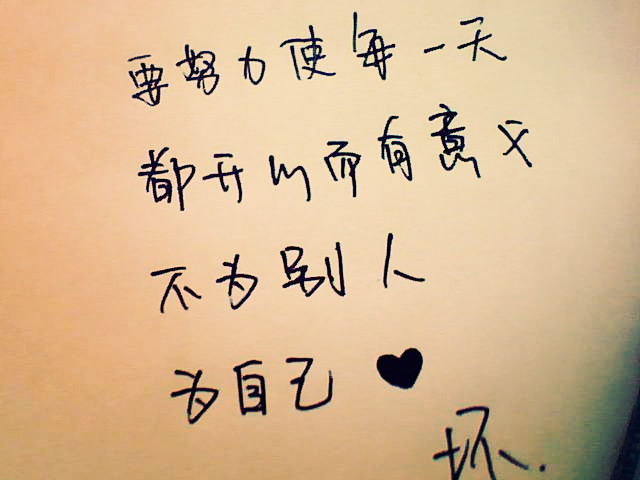 要努力使每一天
都开心而有意义
不为别人
为自己♥
坏.